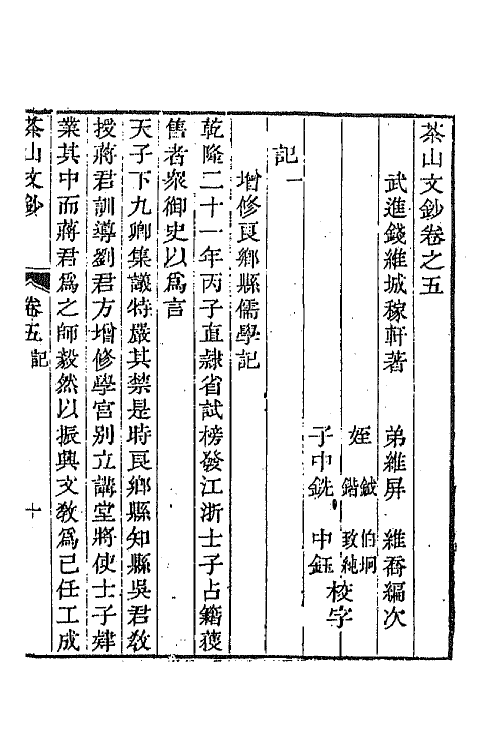 茶山文鈔卷之五
武進錢維城稼軒著　弟維屏　維喬編次
姪　鉞　伯坰
鍇　致純　校字
子中銑　中鈺
記一
增修良鄉縣儒學記
乾隆二十一年丙子直隸省試榜發江浙士子占籍獲
售者衆御史以爲言
天子下九卿集議特嚴其禁是時良鄉縣知縣吳君敎
授蔣君訓導劉君方增修學宮別立講堂將使士子肄
業其中而蔣君爲之師毅然以振興文敎爲己任工成
茶山文鈔　卷五　記　十